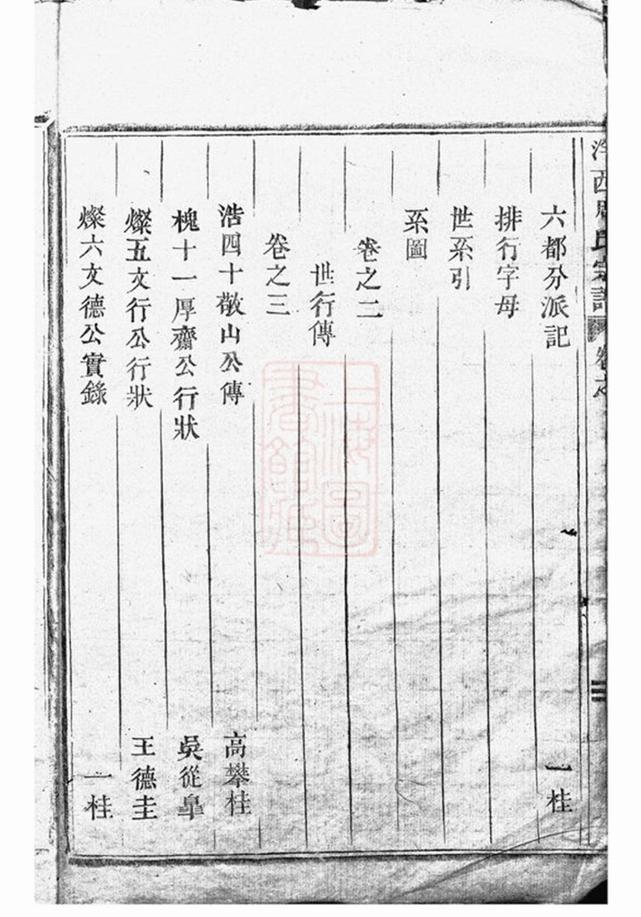 西周氏宗譜 卷之
六都分派記 一桂
排行字母
世系引
系圖
卷之二
世行傳
卷之三
浩四十敬山公傳 高攀桂
槐十一厚齋公行狀 吳從皐
燦五文行公行狀 王德圭
燦六文德公實錄 一桂
上海圖書館藏